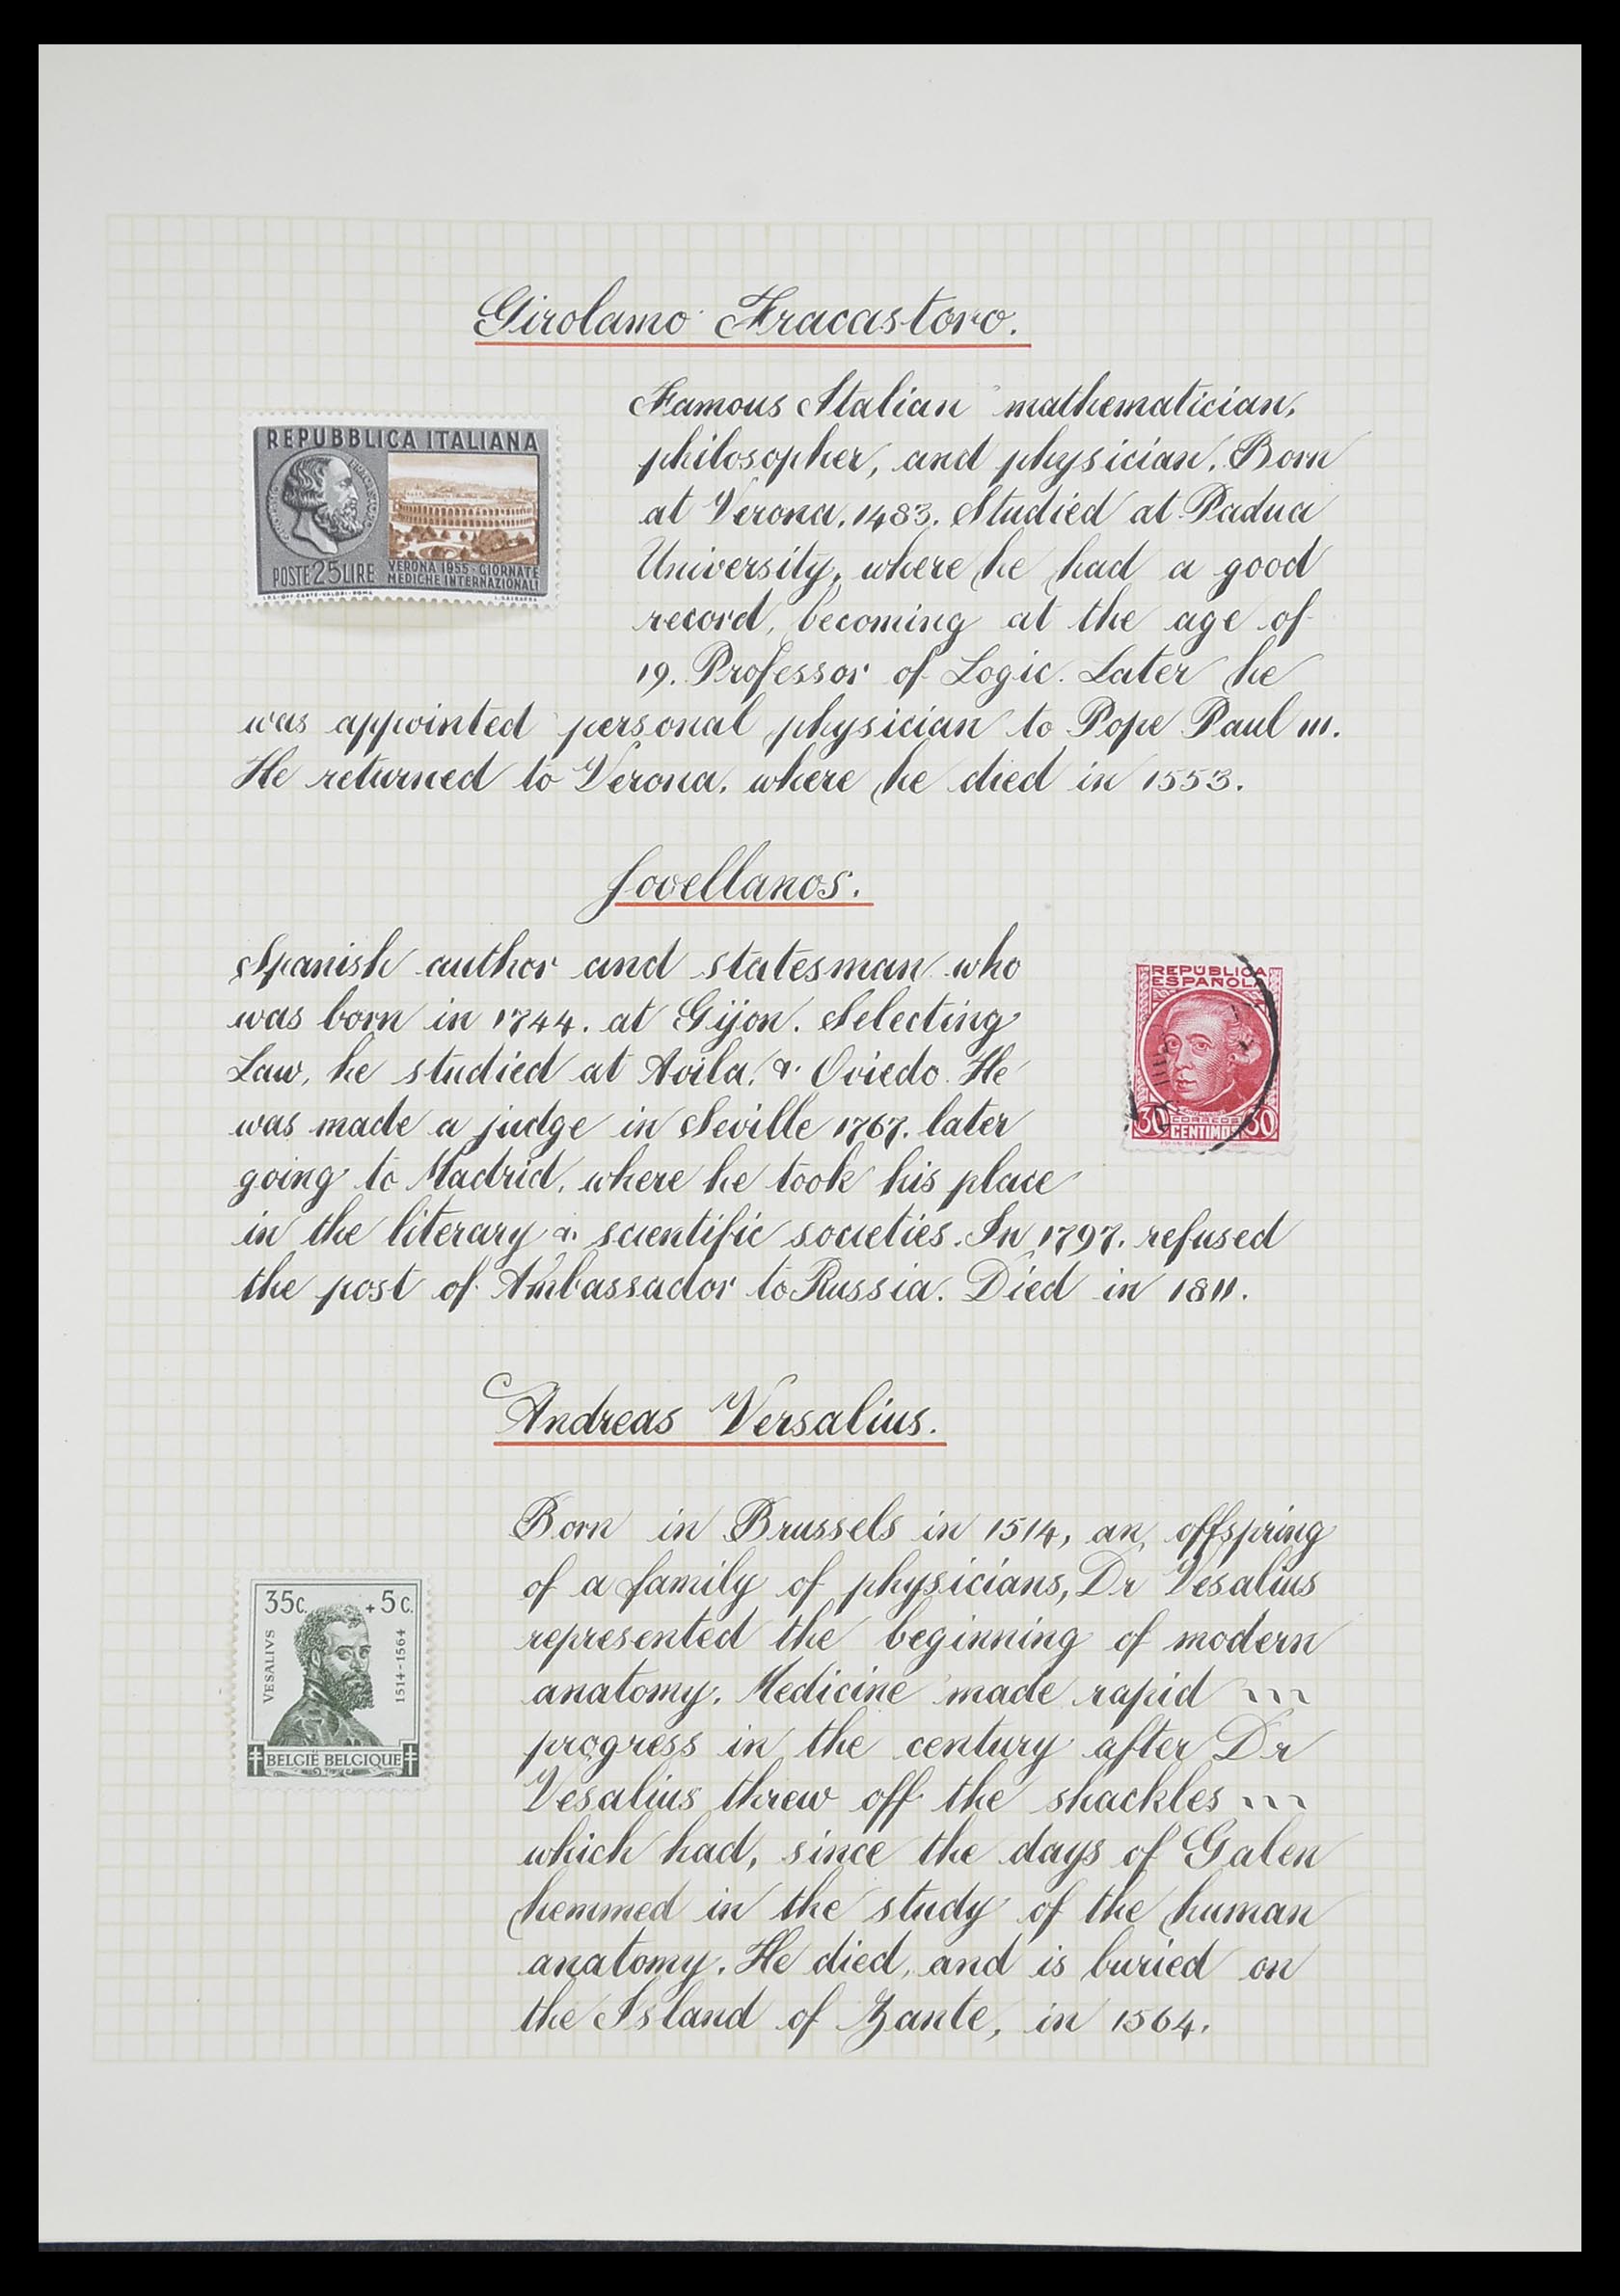 Girolamo Fracastoro.
Famous Italian mathematician,
philosopher, and physician. Born
at Verona, 1483. Studied at Padua
University, where he had a good
record, becoming at the age of
19. Professor of Logic. Later he
was appointed personal physician to Pope Paul III.
He returned to Verona, where he died in 1553.
REPUBBLICA ITALIANA
POSTE 25 LIRE
VERONA 1955 - GIORNATE
MEDICHE INTERNAZIONALI
Jovellanos.
Spanish author and statesman who
was born in 1744. at Gijon. Selecting
Law, he studied at Avila, & Oviedo. He
was made a judge in Seville 1767. later
going to Madrid, where he took his place
in the literary & scientific societies. In 1797. refused
the post of Ambassador to Russia. Died in 1811.
REPUBLICA
ESPAÑOLA
30 CORREOS 30
CENTIMOS
Andreas Versalius.
Born in Brussels in 1514, an, offspring
of a family of physicians, Dr Vesalius
represented the beginning of modern
anatomy. Medicine made rapid ~~~
progress in the century after Dr
Vesalius threw off the shackles ~~~
which had, since the days of Galen
hemmed in the study of the human
anatomy. He died, and is buried on
the Island of Zante, in 1564.
35c. + 5c.
VESALIVS
1514-1564
BELGIË BELGIQUE